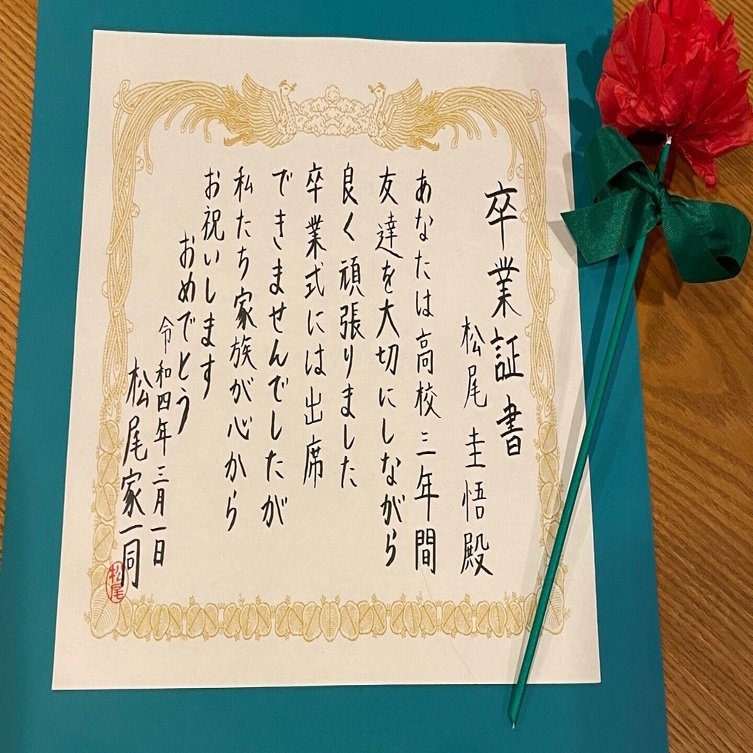 卒業証書
松尾圭悟殿
あなたは高校三年間
友達を大切にしながら
良く頑張りました
卒業式には出席
できませんでしたが
私たち家族が心から
お祝いします
おめでとう
令和四年三月一日
松尾家一同
松尾